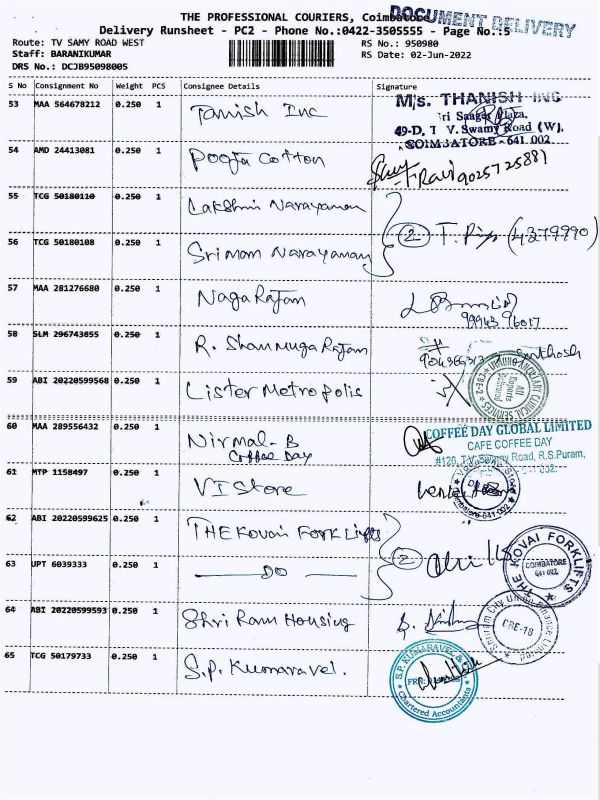 THE PROFESSIONAL COURIERS, Coimbatore
DOCUMENT DELIVERY
Delivery Runsheet - PC2 - Phone No.:0422-3505555 - Page No.:5
Route: TV SAMY ROAD WEST
RS No.: 950980
Staff: BARANIKUMAR
RS Date: 02-Jun-2022
DRS No.: DCJB95098005
S No Consignment No Weight PCS Consignee Details Signature
53 MAA 564678212 0.250 1 Tanish Inc
M/s. THANISH INC
Sri Saagar Plaza,
49-D, T. V. Swamy Road (W),
COIMBATORE - 641 002
54 AMD 24413081 0.250 1 Pooja Cotton
9025725881
55 TCG 50180110 0.250 1 Lakshmi Narayanan
56 TCG 50180108 0.250 1 Sriman Narayanan
2
57 MAA 281276680 0.250 1 NagaRajan
99943 96017
58 SLM 296743855 0.250 1 R. ShanmugaRajan
Santhosh
59 ABI 20220599568 0.250 1 Lister Metropolis
60 MAA 289556432 0.250 1 Nirmal-B
Coffee Day
COFFEE DAY GLOBAL LIMITED
CAFE COFFEE DAY
#126, T.V. Swamy Road, R.S.Puram,
61 MTP 1158497 0.250 1 VI Store
62 ABI 20220599625 0.250 1 THE Kovai Fork Lifts
63 UPT 6039333 0.250 1 — DO —
2
THE KOVAI FORKLIFTS
COIMBATORE
641 002
64 ABI 20220599593 0.250 1 Shri Ram Housing
CBE-18
65 TCG 50179733 0.250 1 S.P. Kumaravel.
S.P. KUMARAVEL &
Chartered Accountants